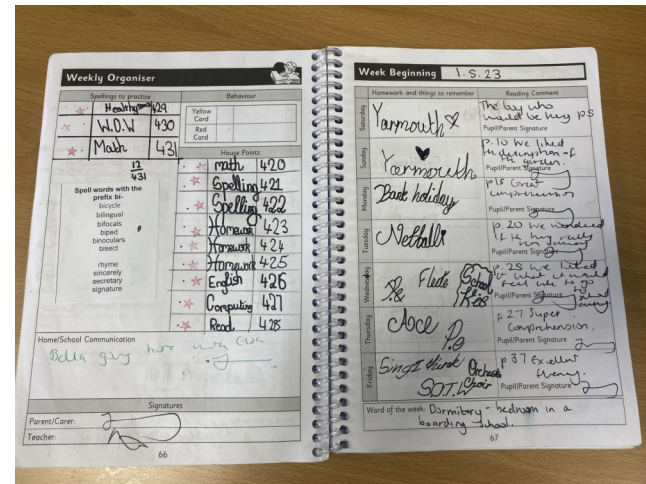 Weekly Organiser
Spellings to practise
Healthy 429
W.O.W 430
Math 431
12
431
Spell words with the
prefix bi-
bicycle
bilingual
bifocals
biped
binoculars
bisect
rhyme
sincerely
secretary
signature
Behaviour
Yellow
Card
Red
Card
House Points
math 420
Spelling 421
Spelling 422
Homework 423
Homework 424
Homework 425
English 426
Computing 427
Read 428
Home/School Communication
Bella
Signatures
Parent/Carer:
Teacher:
66
Week Beginning 1.5.23
Homework and things to remember
Reading Comment
Saturday
Yarmouth
The boy who
would be king p5
Pupil/Parent Signature
Sunday
Yarmouth
p.10 We liked
the description of
the garden.
Pupil/Parent Signature
Monday
Bank holiday
p15 Great
comprehension
Pupil/Parent Signature
Tuesday
Netball
p.20 We wondered
if the king really
Wednesday
P.e Flute School
p.25 We liked
what it would
feel like to go
to
Pupil/Parent Signature
Thursday
P.e
p27 Super
comprehension.
Friday
Sing Orchestra
S.O.T. Choir
p37 Excellent
fluency.
Pupil/Parent Signature
Word of the week: Dormitory - bedroom in a
boarding school.
67